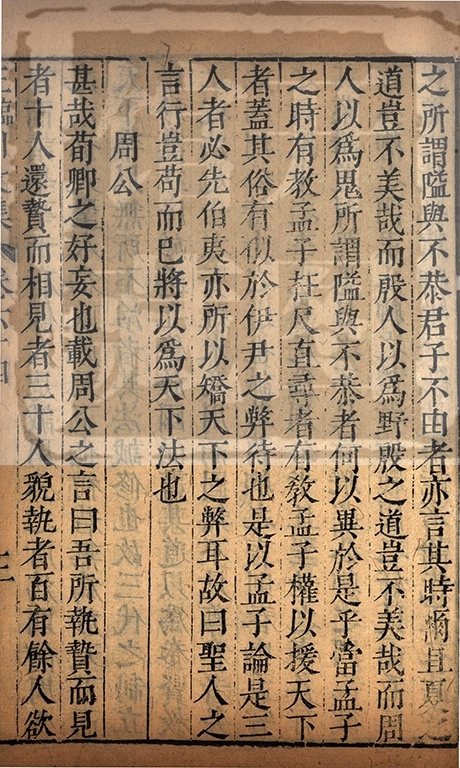 之所謂隘與不恭君子不由者亦言其時爾且夏之
道豈不美哉而殷人以為野殷之道豈不美哉而周
人以為鬼所謂隘與不恭者何以異於是乎當孟子
之時有教孟子枉尺直尋者有教孟子權以援天下
者蓋其俗有似於伊尹之弊時也是以孟子論是三
人者必先伯夷亦所以矯天下之弊耳故曰聖人之
言行豈苟而已將以為天下法也
周公
甚哉荀卿之好妄也載周公之言曰吾所執贄而見
者十人還贄而相見者三十人貌執者百有餘人欲